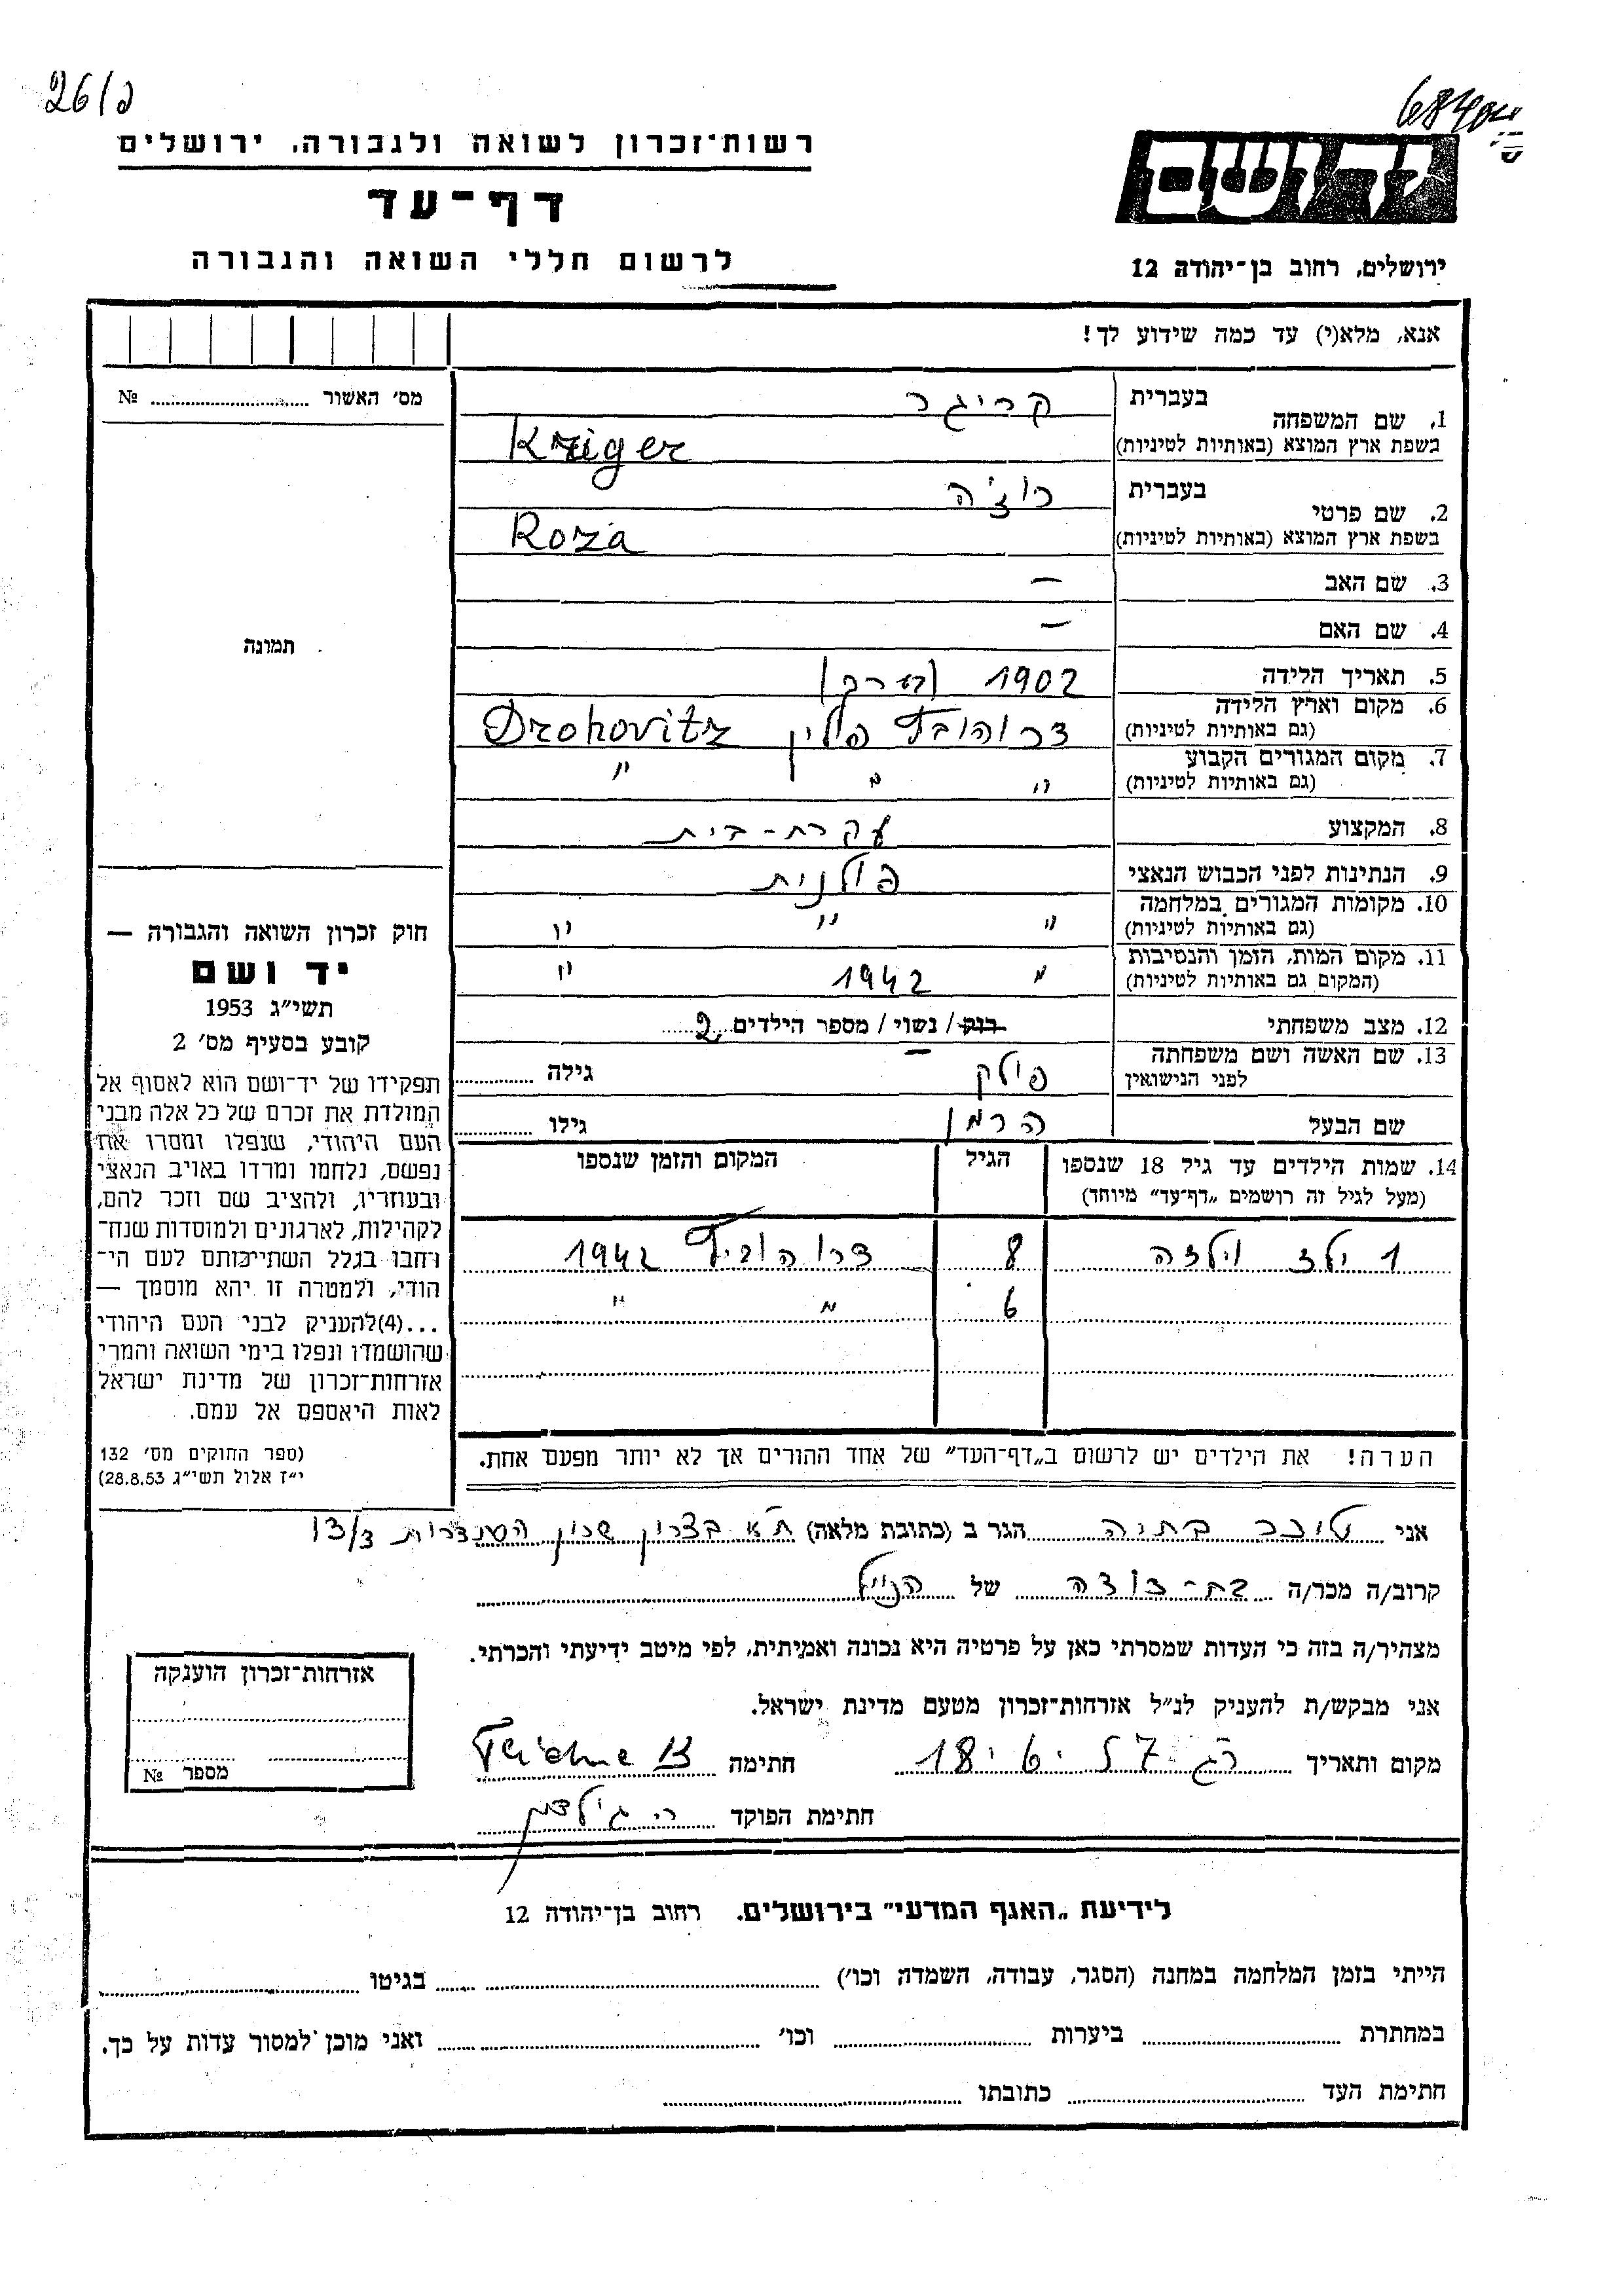 26/ק
68404
רשות־זכרון לשואה ולגבורה, ירושלים
יד ושם
דף־עד
לרשום חללי השואה והגבורה
ירושלים, רחוב בן־יהודה 12
אנא, מלא(י) עד כמה שידוע לך!
מס׳ האשור № 
1. שם המשפחה
בעברית קריגר
בשפת ארץ המוצא (באותיות לטיניות) Kriger
2. שם פרטי
בעברית רוז'ה
בשפת ארץ המוצא (באותיות לטיניות) Roza
3. שם האב –
4. שם האם –
תמונה
5. תאריך הלידה 1902 (בערך)
6. מקום וארץ הלידה
(גם באותיות לטיניות) דרוהוביץ פולין Drohovitz
7. מקום המגורים הקבוע
(גם באותיות לטיניות) " " "
8. המקצוע עקרת-בית
9. הנתינות לפני הכבוש הנאצי פולנית
10. מקומות המגורים במלחמה
(גם באותיות לטיניות) " " "
11. מקום המות, הזמן והנסיבות
(המקום גם באותיות לטיניות) " 1942 "
12. מצב משפחתי רוק / נשוי / מספר הילדים 2
13. שם האשה ושם משפחתה
לפני הנישואין פולק גילה
שם הבעל הרמן גילו
14. שמות הילדים עד גיל 18 שנספו הגיל המקום והזמן שנספו
(מעל לגיל זה רושמים „דף־עד״ מיוחד)
1 ילד וילדה 8 דרוהוביץ 1942
6 " "
הערה! את הילדים יש לרשום ב„דף־העד״ של אחד ההורים אך לא יותר מפעם אחת.
חוק זכרון השואה והגבורה —
יד ושם
תשי״ג 1953
קובע בסעיף מס׳ 2
תפקידו של יד־ושם הוא לאסוף אל
המולדת את זכרם של כל אלה מבני
העם היהודי, שנפלו ומסרו את
נפשם, נלחמו ומרדו באויב הנאצי
ובעוזריו, ולהציב שם וזכר להם,
לקהילות, לארגונים ולמוסדות שנח־
רבו בגלל השתייכותם לעם הי־
הודי, ולמטרה זו יהא מוסמך —
...(4)להעניק לבני העם היהודי
שהושמדו ונפלו בימי השואה והמרי
אזרחות־זכרון של מדינת ישראל
לאות היאספם אל עמם.
(ספר החוקים מס׳ 132
י״ז אלול תשי״ג 28.8.53)
אני טוכנר בתיה הגר ב (כתובת מלאה) ת"א בצרון שכון
קרוב/ה מכר/ה בת-דודה של הנ"ל
מצהיר/ה בזה כי העדות שמסרתי כאן על פרטיה היא נכונה ואמיתית, לפי מיטב ידיעתי והכרתי.
אני מבקש/ת להעניק לנ״ל אזרחות־זכרון מטעם מדינת ישראל.
מקום ותאריך ר"ג 18.6.57 חתימה
חתימת הפוקד
אזרחות־זכרון הוענקה
מספר №
לידיעת „האגף המדעי״ בירושלים. רחוב בן־יהודה 12
הייתי בזמן המלחמה במחנה (הסגר, עבודה, השמדה וכו׳) בגיטו
במחתרת ביערות וכו׳ ואני מוכן למסור עדות על כך.
חתימת העד כתובתו